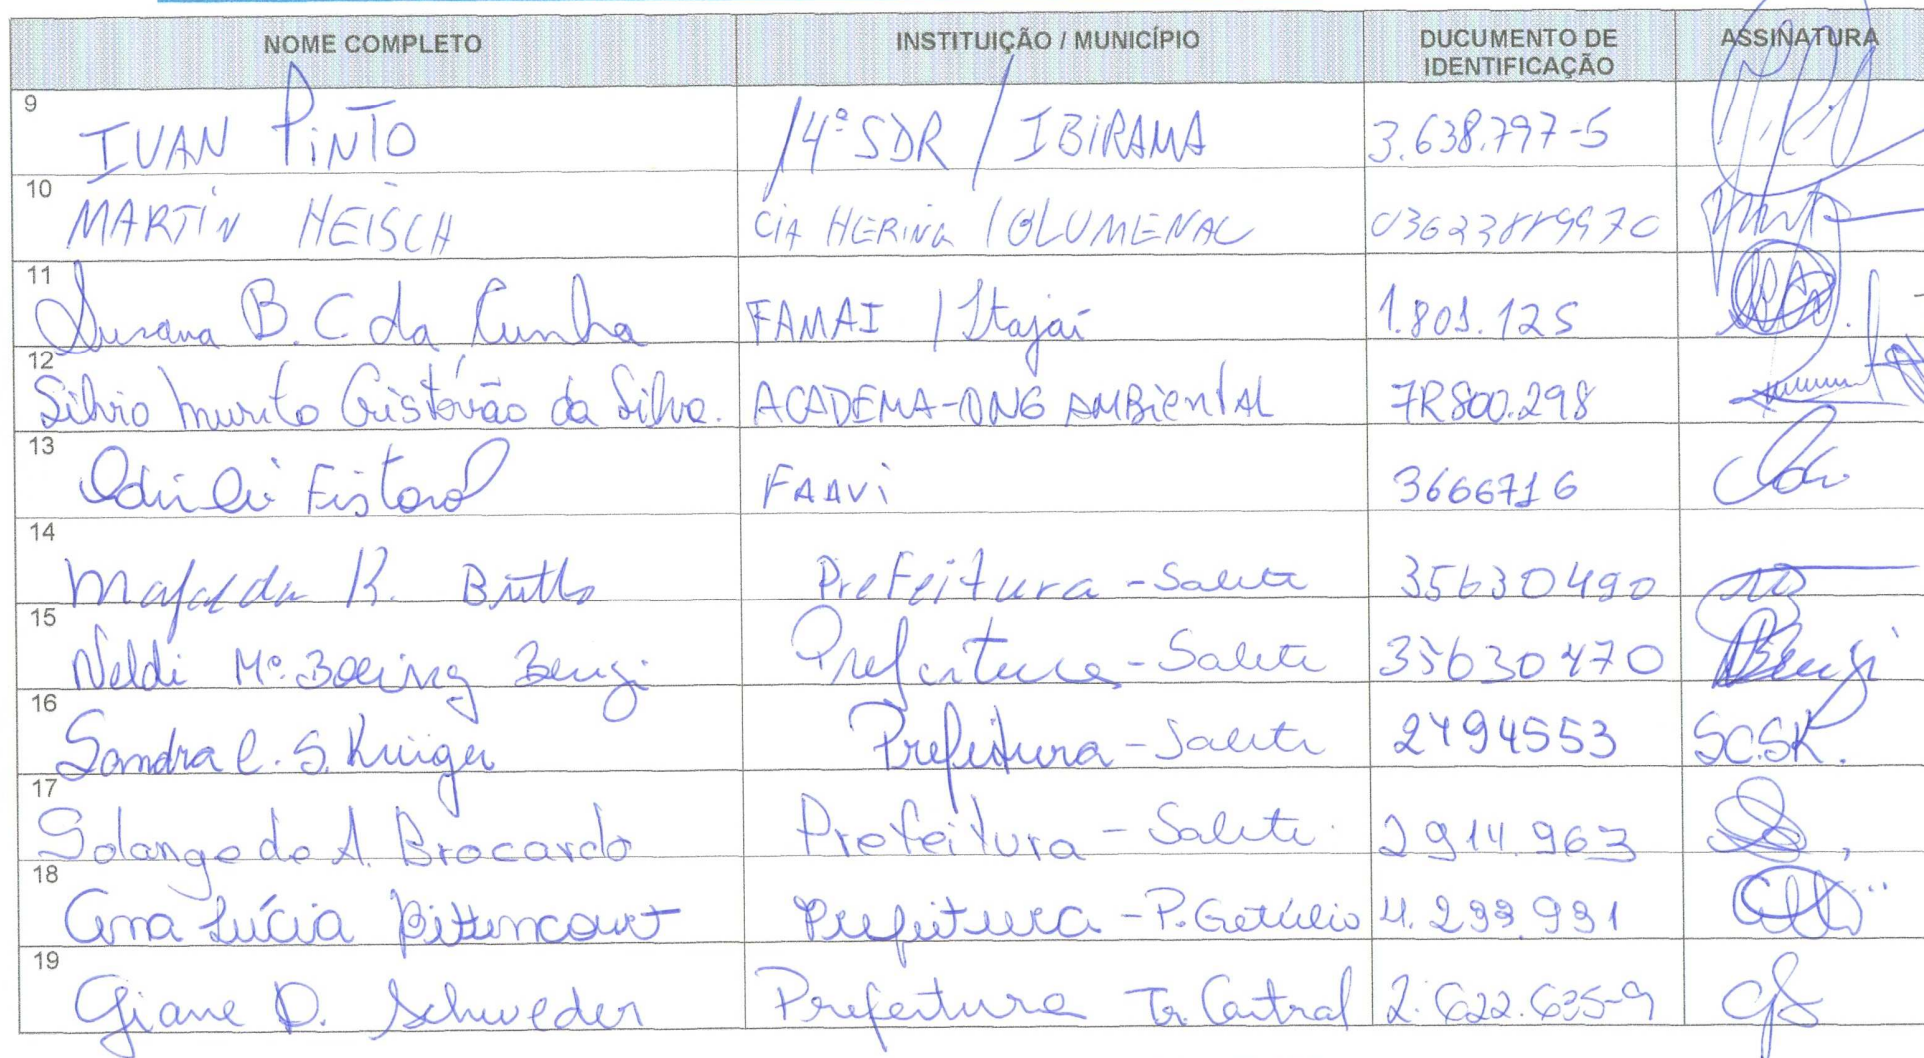 NOME COMPLETO INSTITUIÇÃO / MUNICÍPIO DUCUMENTO DE IDENTIFICAÇÃO ASSINATURA
9 IVAN PINTO 14º SDR / IBIRAMA 3.638.797-5
10 MARTIN HEISCH CIA HERING / BLUMENAU
11 Susana B. C da Cunha FAMAI / Itajaí 1.801.125
12 Silvio Murilo Cristóvão da Silva. ACADEMA-ONG AMBIENTAL 7R800.298
13 FAAVI 3666716
14 Mafalda R. Prefeitura - Salete 35630490
15 Neldi Mª Boeing Prefeitura - Salete 35630470
16 Sandra C. S. Kruger Prefeitura - Salete 2494553 SCSK.
17 Solange de A. Brocardo Prefeitura - Salete 2914.963
18 Ana Lúcia Bittencourt Prefeitura - P. Getúlio 4.299.931
19 Giane D. Schweder Prefeitura Tr. Central 2.622.635-9